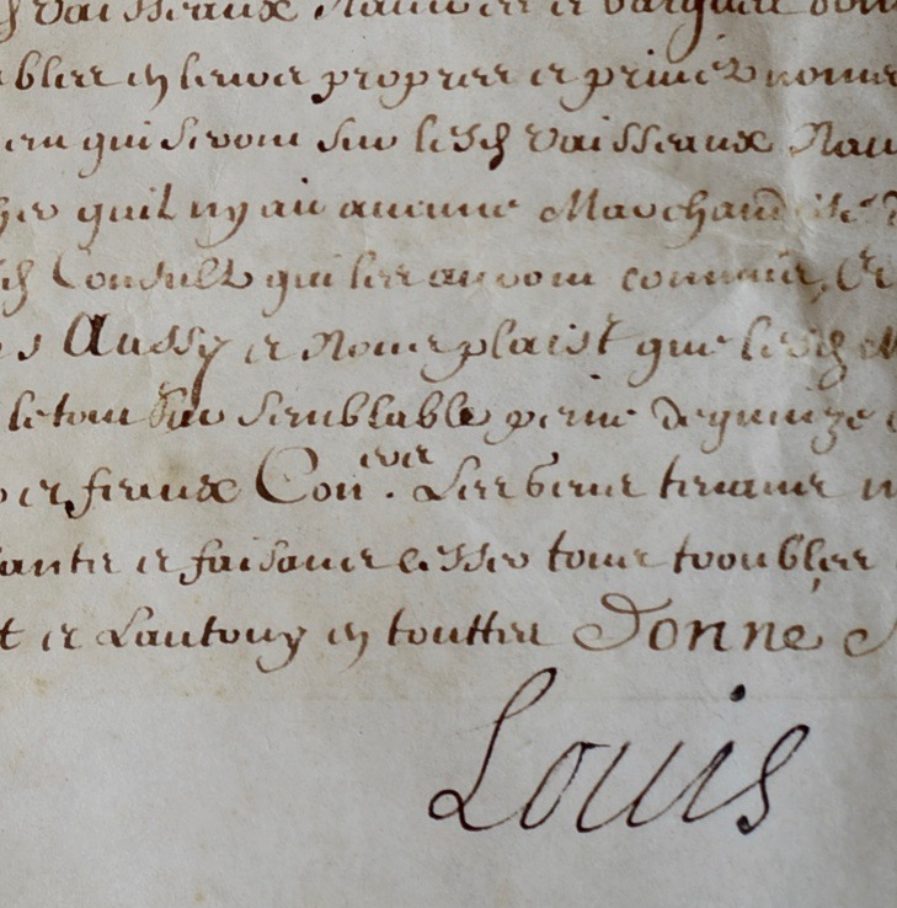 Vaisseaux Navires et barques
en leurs propres et privez noms
qui seront sur lesd vaisseaux Nau
quil ny ait aucune Marchandise
Consulz qui les auront commis, Et
Aussy et Nous plaist que lesd
le tout sur semblable peine de quinze
et feaux Con.ers Les gens tenans
et faisant cesser tous troubles
et Lautony en touttes Donné
Louis